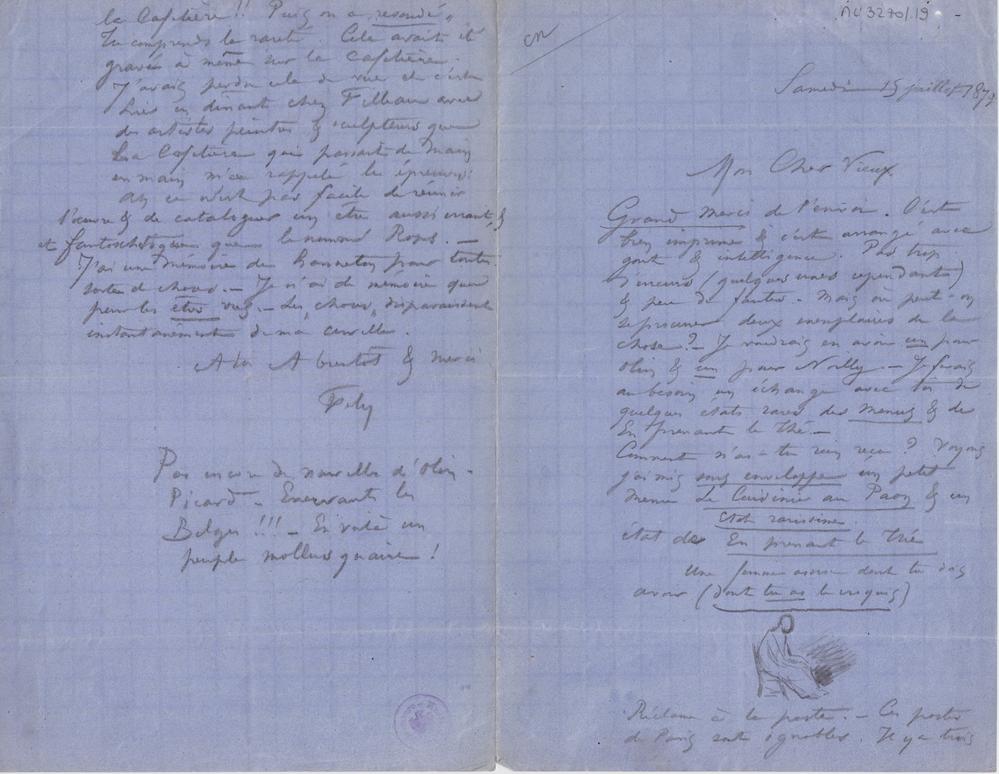 Samedi 15 juillet 1877
Mon Cher Vieux
Grand merci de l'envoi. C'est
bien imprimé & c'est arrangé avec
goût & intelligence. Pas trop
d'erreurs (quelques unes cependant)
& peu de fautes. Mais où peut-on
se procurer deux exemplaires de la
chose ? – Je voudrais en avoir un pour
Olin & un pour Noilly – Je ferais
au besoin un échange avec toi de
quelques états rares des Menus & de
En prenant le thé –
Comment n'as-tu rien reçu ? Voyons
j'ai mis sous enveloppe un petit
menu Le Cuisinier au Paon & un
état rarissime.
état de En prenant le Thé
Une femme assise dont tu dois
avoir (dont tu as le croquis)
Réclame à la poste. – Ces postes
de Paris sont ignobles. Il y a trois
la Cafetière !! Puis on a ressoudé
Tu comprends la rareté. Cela avait été
gravé à même sur la Cafetière.
J'avais perdu cela de vue et c'est
hier en dînant chez Filleau avec
des artistes peintres & sculpteurs que
la Cafetière qui passait de main
en main m'a rappelé les épreuves.
Ah ce n'est pas facile de réunir
l'œuvre & de cataloguer un être aussi errant, &
et fantoschologique que le nommé Rops. –
J'ai une mémoire de hanneton pour toutes
sortes de choses. – Je n'ai de mémoire que
pour les êtres vus. – Les "choses" disparaissent
instantanément de ma cervelle.
A toi A bientôt & merci
Fély
Pas encore de nouvelles d'Olin –
Picard – Enervants les
Belges !!! – En voilà un
peuple mollusquaire !